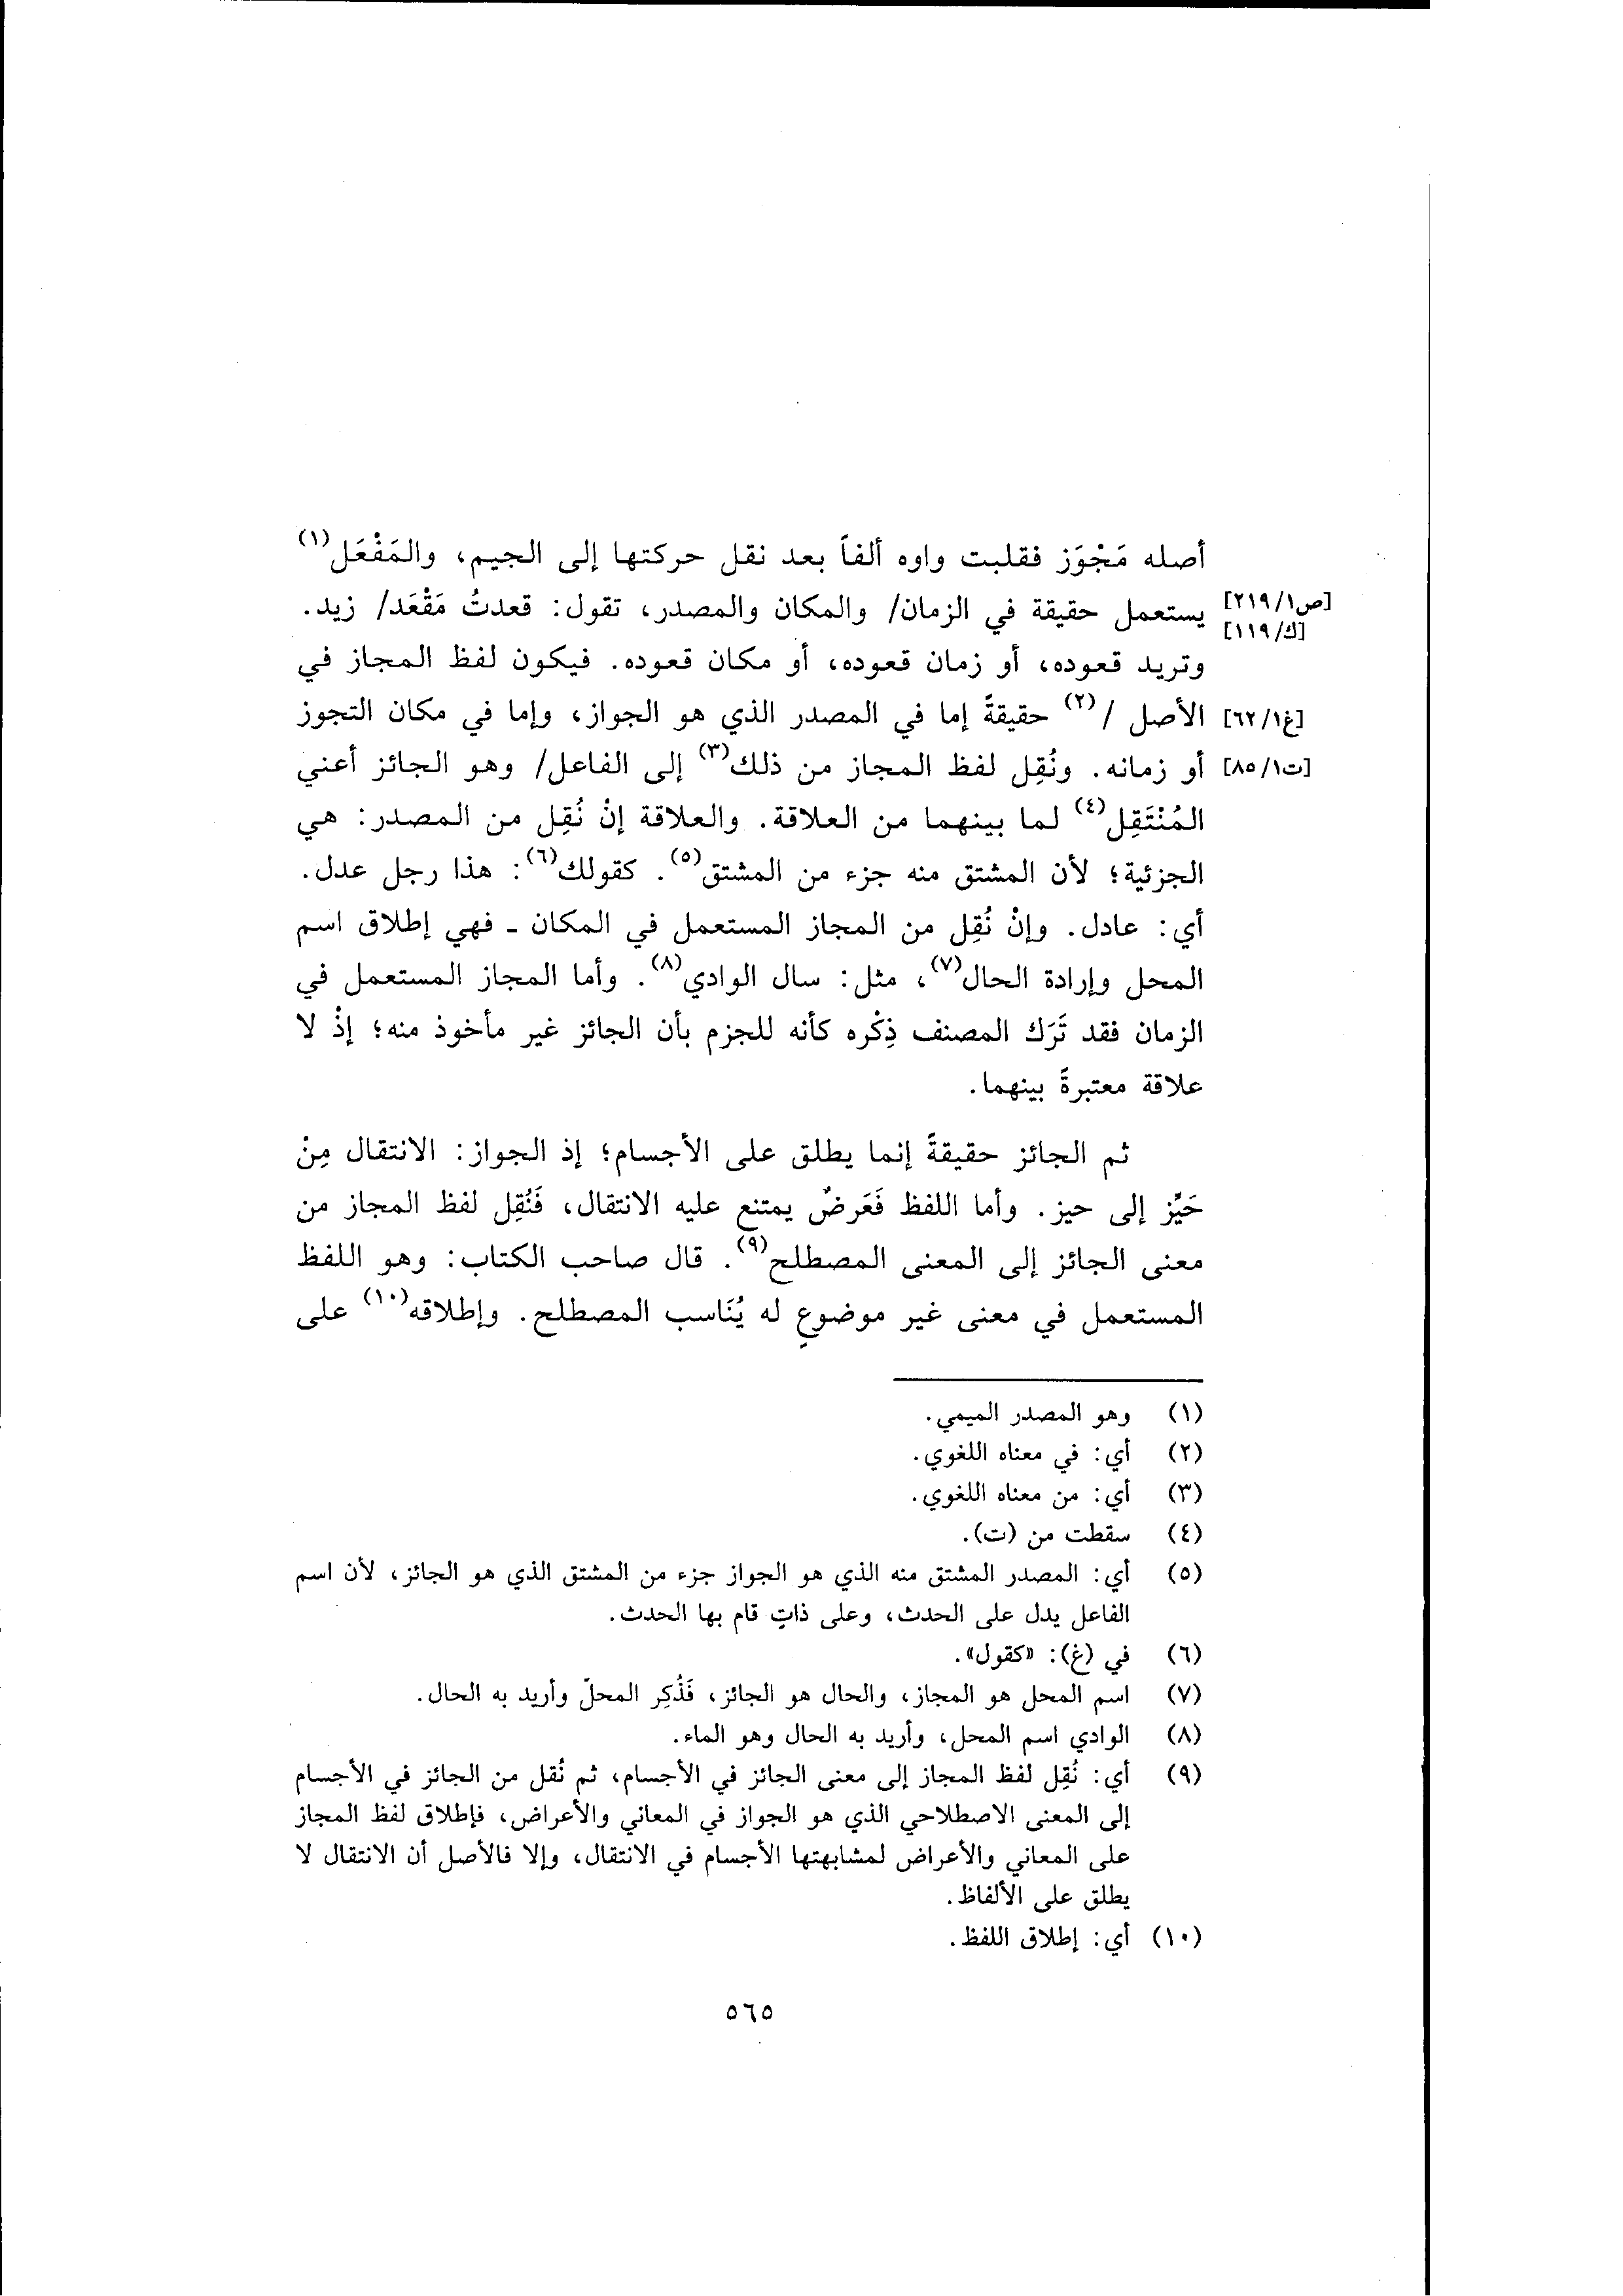 أصله مَجْوَز فقلبت واوه ألفاً بعد نقل حركتها إلى الجيم، والمَفْعَل(١)
[ص١/٢١٩] يستعمل حقيقة في الزمان/ والمكان والمصدر، تقول: قعدتُ مَقْعَد/ زيد.
[ك/١١٩]
وتريد قعوده، أو زمان قعوده، أو مكان قعوده. فيكون لفظ المجاز في
[غ١/٦٢] الأصل /(٢) حقيقةً إما في المصدر الذي هو الجواز، وإما في مكان التجوز
[ت١/٨٥] أو زمانه. ونُقِل لفظ المجاز من ذلك(٣) إلى الفاعل/ وهو الجائز أعني
المُنْتَقِل(٤) لما بينهما من العلاقة. والعلاقة إنْ نُقِل من المصدر: هي
الجزئية؛ لأن المشتق منه جزء من المشتق(٥). كقولك(٦): هذا رجل عدل.
أي: عادل. وإنْ نُقِل من المجاز المستعمل في المكان ـ فهي إطلاق اسم
المحل وإرادة الحال(٧)، مثل: سال الوادي(٨). وأما المجاز المستعمل في
الزمان فقد تَرَك المصنف ذِكْره كأنه للجزم بأن الجائز غير مأخوذ منه؛ إذْ لا
علاقة معتبرةً بينهما.
ثم الجائز حقيقةً إنما يطلق على الأجسام؛ إذ الجواز: الانتقال مِنْ
حَيِّز إلى حيز. وأما اللفظ فَعَرضٌ يمتنع عليه الانتقال، فَنُقِل لفظ المجاز من
معنى الجائز إلى المعنى المصطلح(٩). قال صاحب الكتاب: وهو اللفظ
المستعمل في معنى غير موضوعٍ له يُنَاسب المصطلح. وإطلاقه(١٠) على
(١) وهو المصدر الميمي.
(٢) أي: في معناه اللغوي.
(٣) أي: من معناه اللغوي.
(٤) سقطت من (ت).
(٥) أي: المصدر المشتق منه الذي هو الجواز جزء من المشتق الذي هو الجائز، لأن اسم
الفاعل يدل على الحدث، وعلى ذاتٍ قام بها الحدث.
(٦) في (غ): «كقول».
(٧) اسم المحل هو المجاز، والحال هو الجائز، فَذُكِر المحلّ وأريد به الحال.
(٨) الوادي اسم المحل، وأريد به الحال وهو الماء.
(٩) أي: نُقِل لفظ المجاز إلى معنى الجائز في الأجسام، ثم نُقل من الجائز في الأجسام
إلى المعنى الاصطلاحي الذي هو الجواز في المعاني والأعراض، فإطلاق لفظ المجاز
على المعاني والأعراض لمشابهتها الأجسام في الانتقال، وإلا فالأصل أن الانتقال لا
يطلق على الألفاظ.
(١٠) أي: إطلاق اللفظ.
٥٦٥